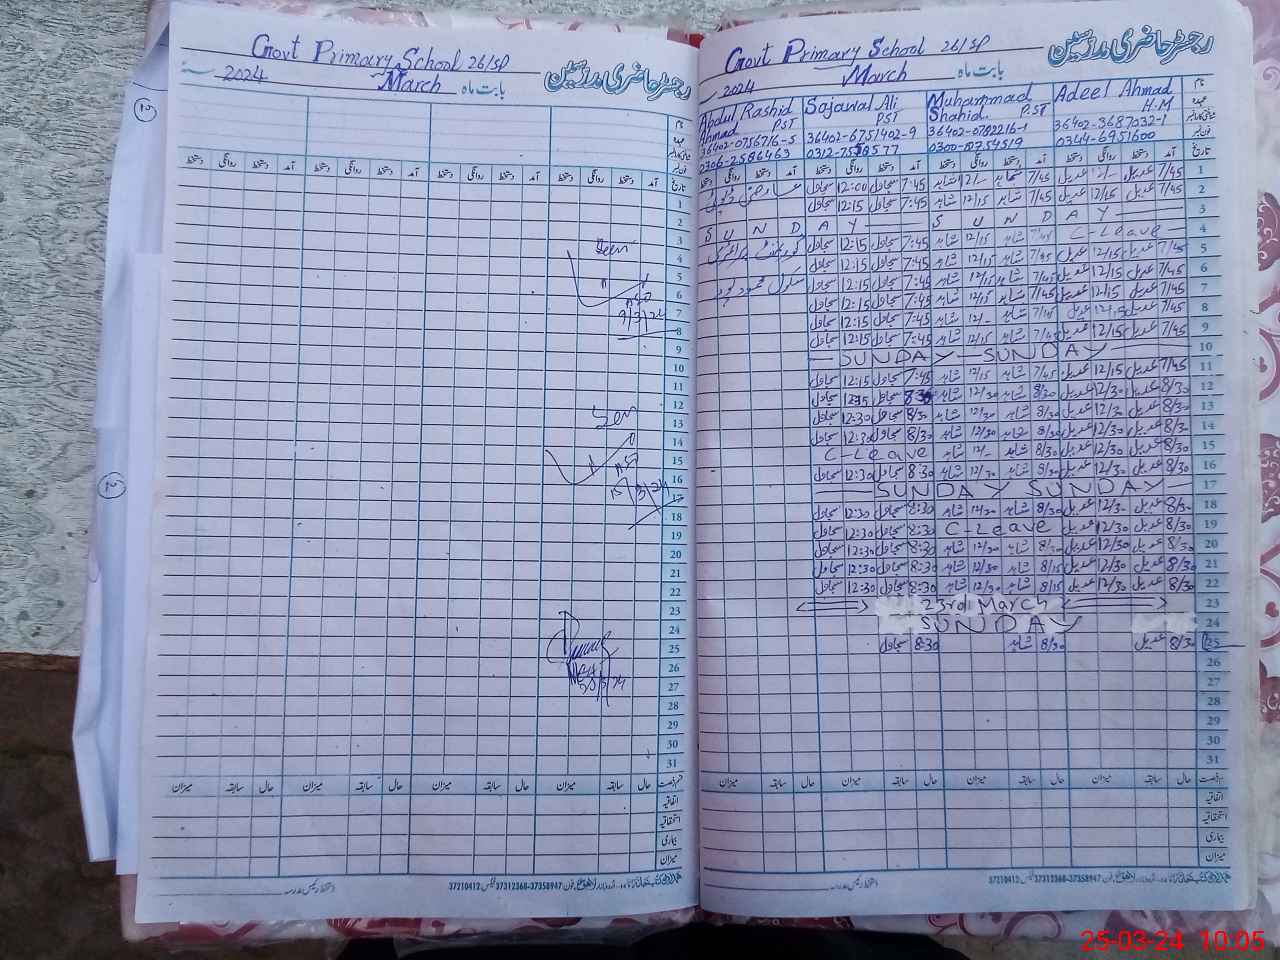 Govt Primary School 26/SP
رجسٹر حاضری مدرسین
2024 March بابت ماہ
آمد دستخط روانگی دستخط آمد دستخط روانگی دستخط آمد دستخط روانگی دستخط آمد دستخط روانگی دستخط تاریخ
1
2
3
Seen
4
5
6
7
9/3/24
8
9
10
11
12
13
Seen
14
15
16
15/3/24
17
18
19
20
21
22
23
24
25
26
27
28
29
30
31
حال سابقہ میزان حال سابقہ میزان حال سابقہ میزان حال سابقہ میزان
اتفاقیہ
استحقاقیہ
بیماری
میزان
37210412 37312368-37358947
Govt Primary School 26/SP
رجسٹر حاضری مدرسین
2024 March بابت ماہ
Abdul Rashid Ahmad PST Sajawal Ali PST Muhammad Shahid PST Adeel Ahmad H.M نام
36402-0756716-5 36402-6751402-9 36402-0782216-1 36402-3687032-1
0306-2586463 0300-8754519 0344-6951600
دستخط روانگی دستخط آمد دستخط روانگی دستخط آمد دستخط روانگی دستخط آمد دستخط روانگی دستخط آمد تاریخ
سجاول 12:00 سجاول 7:45 شاہد 12/- شاہد 7/45 عدیل 12/- عدیل 7/45 1
سجاول 12:15 سجاول 7:45 شاہد 12/15 شاہد 7/45 عدیل 12/15 عدیل 7/45 2
SUNDAY — SUNDAY — 3
سجاول 12:15 سجاول 7:45 شاہد 12/15 شاہد 7/45 C-Leave 4
سجاول 12:15 سجاول 7:45 شاہد 12/15 شاہد 7/45 عدیل 12/15 عدیل 7/45 5
سجاول 12:15 سجاول 7:45 شاہد 12/15 شاہد 7/45 عدیل 12/15 عدیل 7/45 6
سجاول 12:15 سجاول 7:45 شاہد 12/15 شاہد 7/45 عدیل 12/15 عدیل 7/45 7
سجاول 12:15 سجاول 7:45 شاہد 12/- شاہد 7/45 عدیل 12/15 عدیل 7/45 8
سجاول 12:15 سجاول 7:45 شاہد 12/15 شاہد 7/45 عدیل 12/15 عدیل 7/45 9
— SUNDAY — SUNDAY — 10
سجاول 12:15 سجاول 7:45 شاہد 12/15 شاہد 7/45 عدیل 12/15 عدیل 7/45 11
سجاول سجاول 8:30 شاہد 12/30 شاہد 8/30 عدیل 12/30 عدیل 8/30 12
سجاول 12:30 سجاول 8/30 شاہد 12/30 شاہد 8/30 عدیل 12/30 عدیل 8/30 13
سجاول 12:30 سجاول 8/30 شاہد 12/30 شاہد 8/30 عدیل 12/30 عدیل 8/30 14
C-Leave شاہد 12/- شاہد 8/30 عدیل 12/30 عدیل 8/30 15
سجاول 12:30 سجاول 8:30 شاہد 12/30 شاہد 8/30 عدیل 12/30 عدیل 8/30 16
— SUNDAY SUNDAY — 17
سجاول 12:30 سجاول 8:30 شاہد 12/30 شاہد 8/30 عدیل 12/30 عدیل 8/30 18
سجاول 12:30 سجاول 8:30 C-Leave عدیل 12/30 عدیل 8/30 19
سجاول 12:30 سجاول 8:30 شاہد 12/30 شاہد 8/30 عدیل 12/30 عدیل 8/30 20
سجاول 12:30 سجاول 8:30 شاہد 12/30 شاہد 8/15 عدیل 12/30 عدیل 8/30 21
سجاول 12:30 سجاول 8:30 شاہد 12/30 شاہد 8/15 عدیل 12/30 عدیل 8/30 22
23rd March 23
SUNDAY 24
سجاول 8:30 شاہد 8/30 عدیل 8/30 25
26
27
28
29
30
31
میزان سابقہ حال میزان سابقہ حال میزان سابقہ حال میزان سابقہ حال
اتفاقیہ
استحقاقیہ
بیماری
میزان
37210412 37312368-37358947
25-03-24 10:05